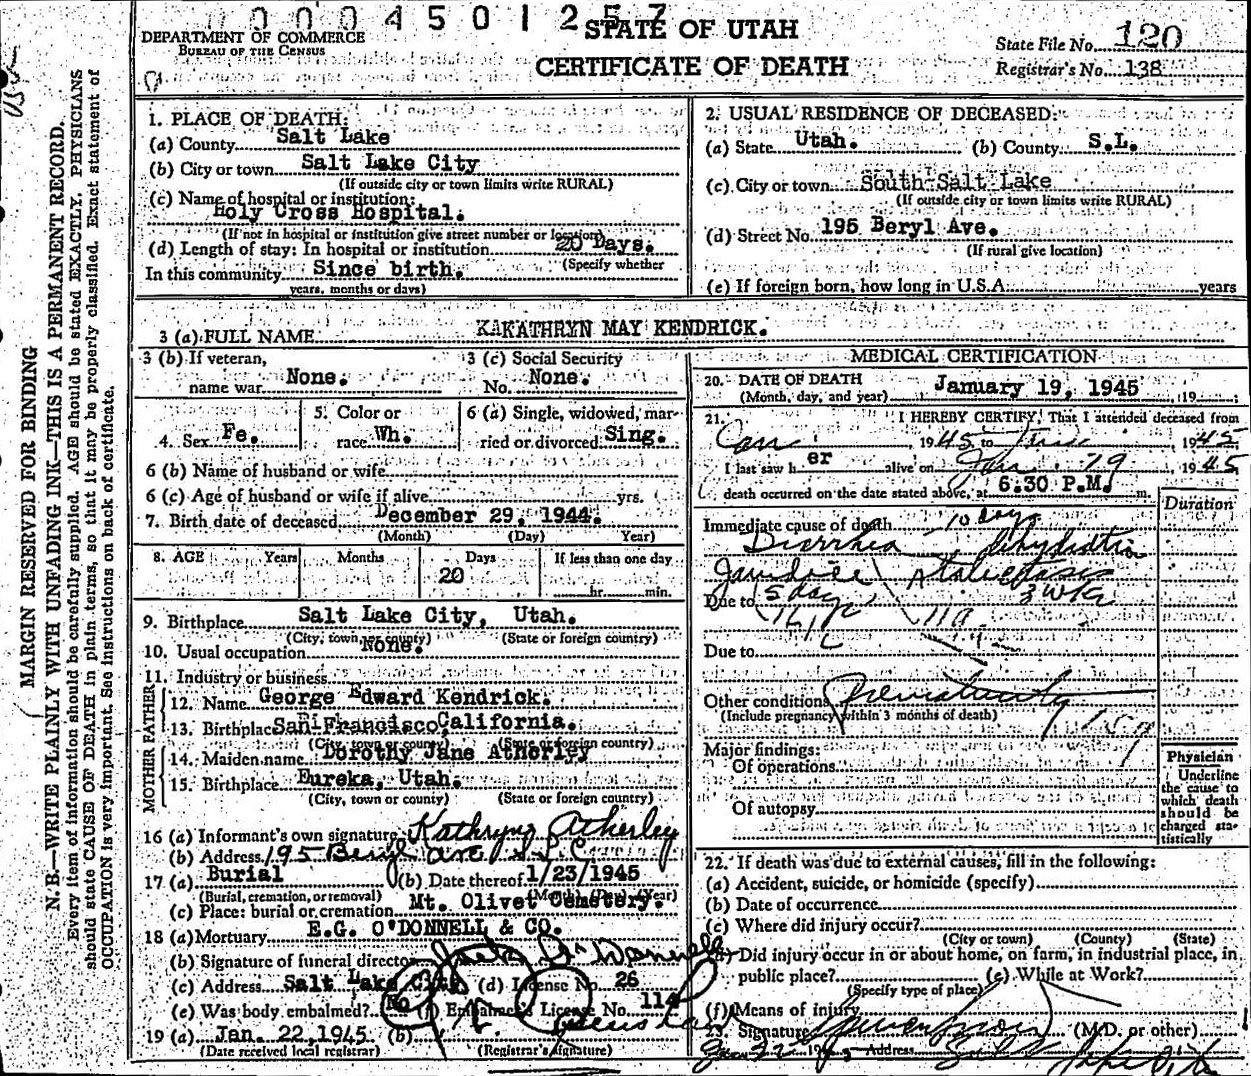 0 0 0 4 5 0 1 2 5 7
DEPARTMENT OF COMMERCE
BUREAU OF THE CENSUS
STATE OF UTAH
CERTIFICATE OF DEATH
State File No. 120
Registrar's No. 138
MARGIN RESERVED FOR BINDING
N. B.—WRITE PLAINLY WITH UNFADING INK—THIS IS A PERMANENT RECORD.
Every item of information should be carefully supplied. AGE should be stated EXACTLY. PHYSICIANS
should state CAUSE OF DEATH in plain terms, so that it may be properly classified. Exact statement of
OCCUPATION is very important. See instructions on back of certificate.
1. PLACE OF DEATH:
(a) County Salt Lake
(b) City or town Salt Lake City
(If outside city or town limits write RURAL)
(c) Name of hospital or institution:
Holy Cross Hospital.
(If not in hospital or institution give street number or location)
(d) Length of stay: In hospital or institution 20 Days.
(Specify whether
In this community Since birth.
years, months or days)
2. USUAL RESIDENCE OF DECEASED:
(a) State Utah. (b) County S.L.
(c) City or town South Salt Lake
(If outside city or town limits write RURAL)
(d) Street No. 195 Beryl Ave.
(If rural give location)
(e) If foreign born, how long in U.S.A. years
3 (a) FULL NAME KAKATHRYN MAY KENDRICK.
3 (b) If veteran, name war None.
3 (c) Social Security No. None.
4. Sex Fe.
5. Color or race Wh.
6 (a) Single, widowed, married or divorced Sing.
6 (b) Name of husband or wife
6 (c) Age of husband or wife if alive yrs.
7. Birth date of deceased December 29, 1944.
(Month) (Day) Year)
8. AGE Years Months Days If less than one day
20 hr. min.
9. Birthplace Salt Lake City, Utah.
(City, town, or county) (State or foreign country)
10. Usual occupation None.
11. Industry or business
FATHER
12. Name George Edward Kendrick.
13. Birthplace San Francisco, California.
(City, town or county) (State or foreign country)
MOTHER
14. Maiden name Dorothy Jane Atherley
15. Birthplace Eureka, Utah.
(City, town or county) (State or foreign country)
16 (a) Informant's own signature Kathryne Atherley
(b) Address 195 Beryl ave S L C
17 (a) Burial (b) Date thereof 1/23/1945
(Burial, cremation, or removal) (Month) (Day) (Year)
(c) Place: burial or cremation Mt. Olivet Cemetery.
18 (a) Mortuary E.G. O'DONNELL & CO.
(b) Signature of funeral director
(c) Address Salt Lake City (d) License No. 26
(e) Was body embalmed? No (f) Embalmer's License No. 114
19 (a) Jan. 22, 1945 (b)
(Date received local registrar) (Registrar's signature)
MEDICAL CERTIFICATION
20. DATE OF DEATH January 19, 1945
(Month, day, and year) , 19 ;
21. I HEREBY CERTIFY, That I attended deceased from
1945, to 1945
I last saw h er alive on Jan 19 1945
death occurred on the date stated above, at 6.30 P.M. m.
Duration
Immediate cause of death 10 days
Diarrhea dehydration
Jaundice Atalectasis
Due to 5 days 3 wks
161c 119
Due to
Other conditions Prematurity
(Include pregnancy within 3 months of death)
159
Major findings:
Of operations
Of autopsy
Physician
Underline
the cause to
which death
should be
charged sta-
tistically
22. If death was due to external causes, fill in the following:
(a) Accident, suicide, or homicide (specify)
(b) Date of occurrence
(c) Where did injury occur?
(City or town) (County) (State)
(d) Did injury occur in or about home, on farm, in industrial place, in
public place? (e) While at Work?
(Specify type of place)
(f) Means of injury
23. Signature (M.D. or other)
Jan 22 1945 Address